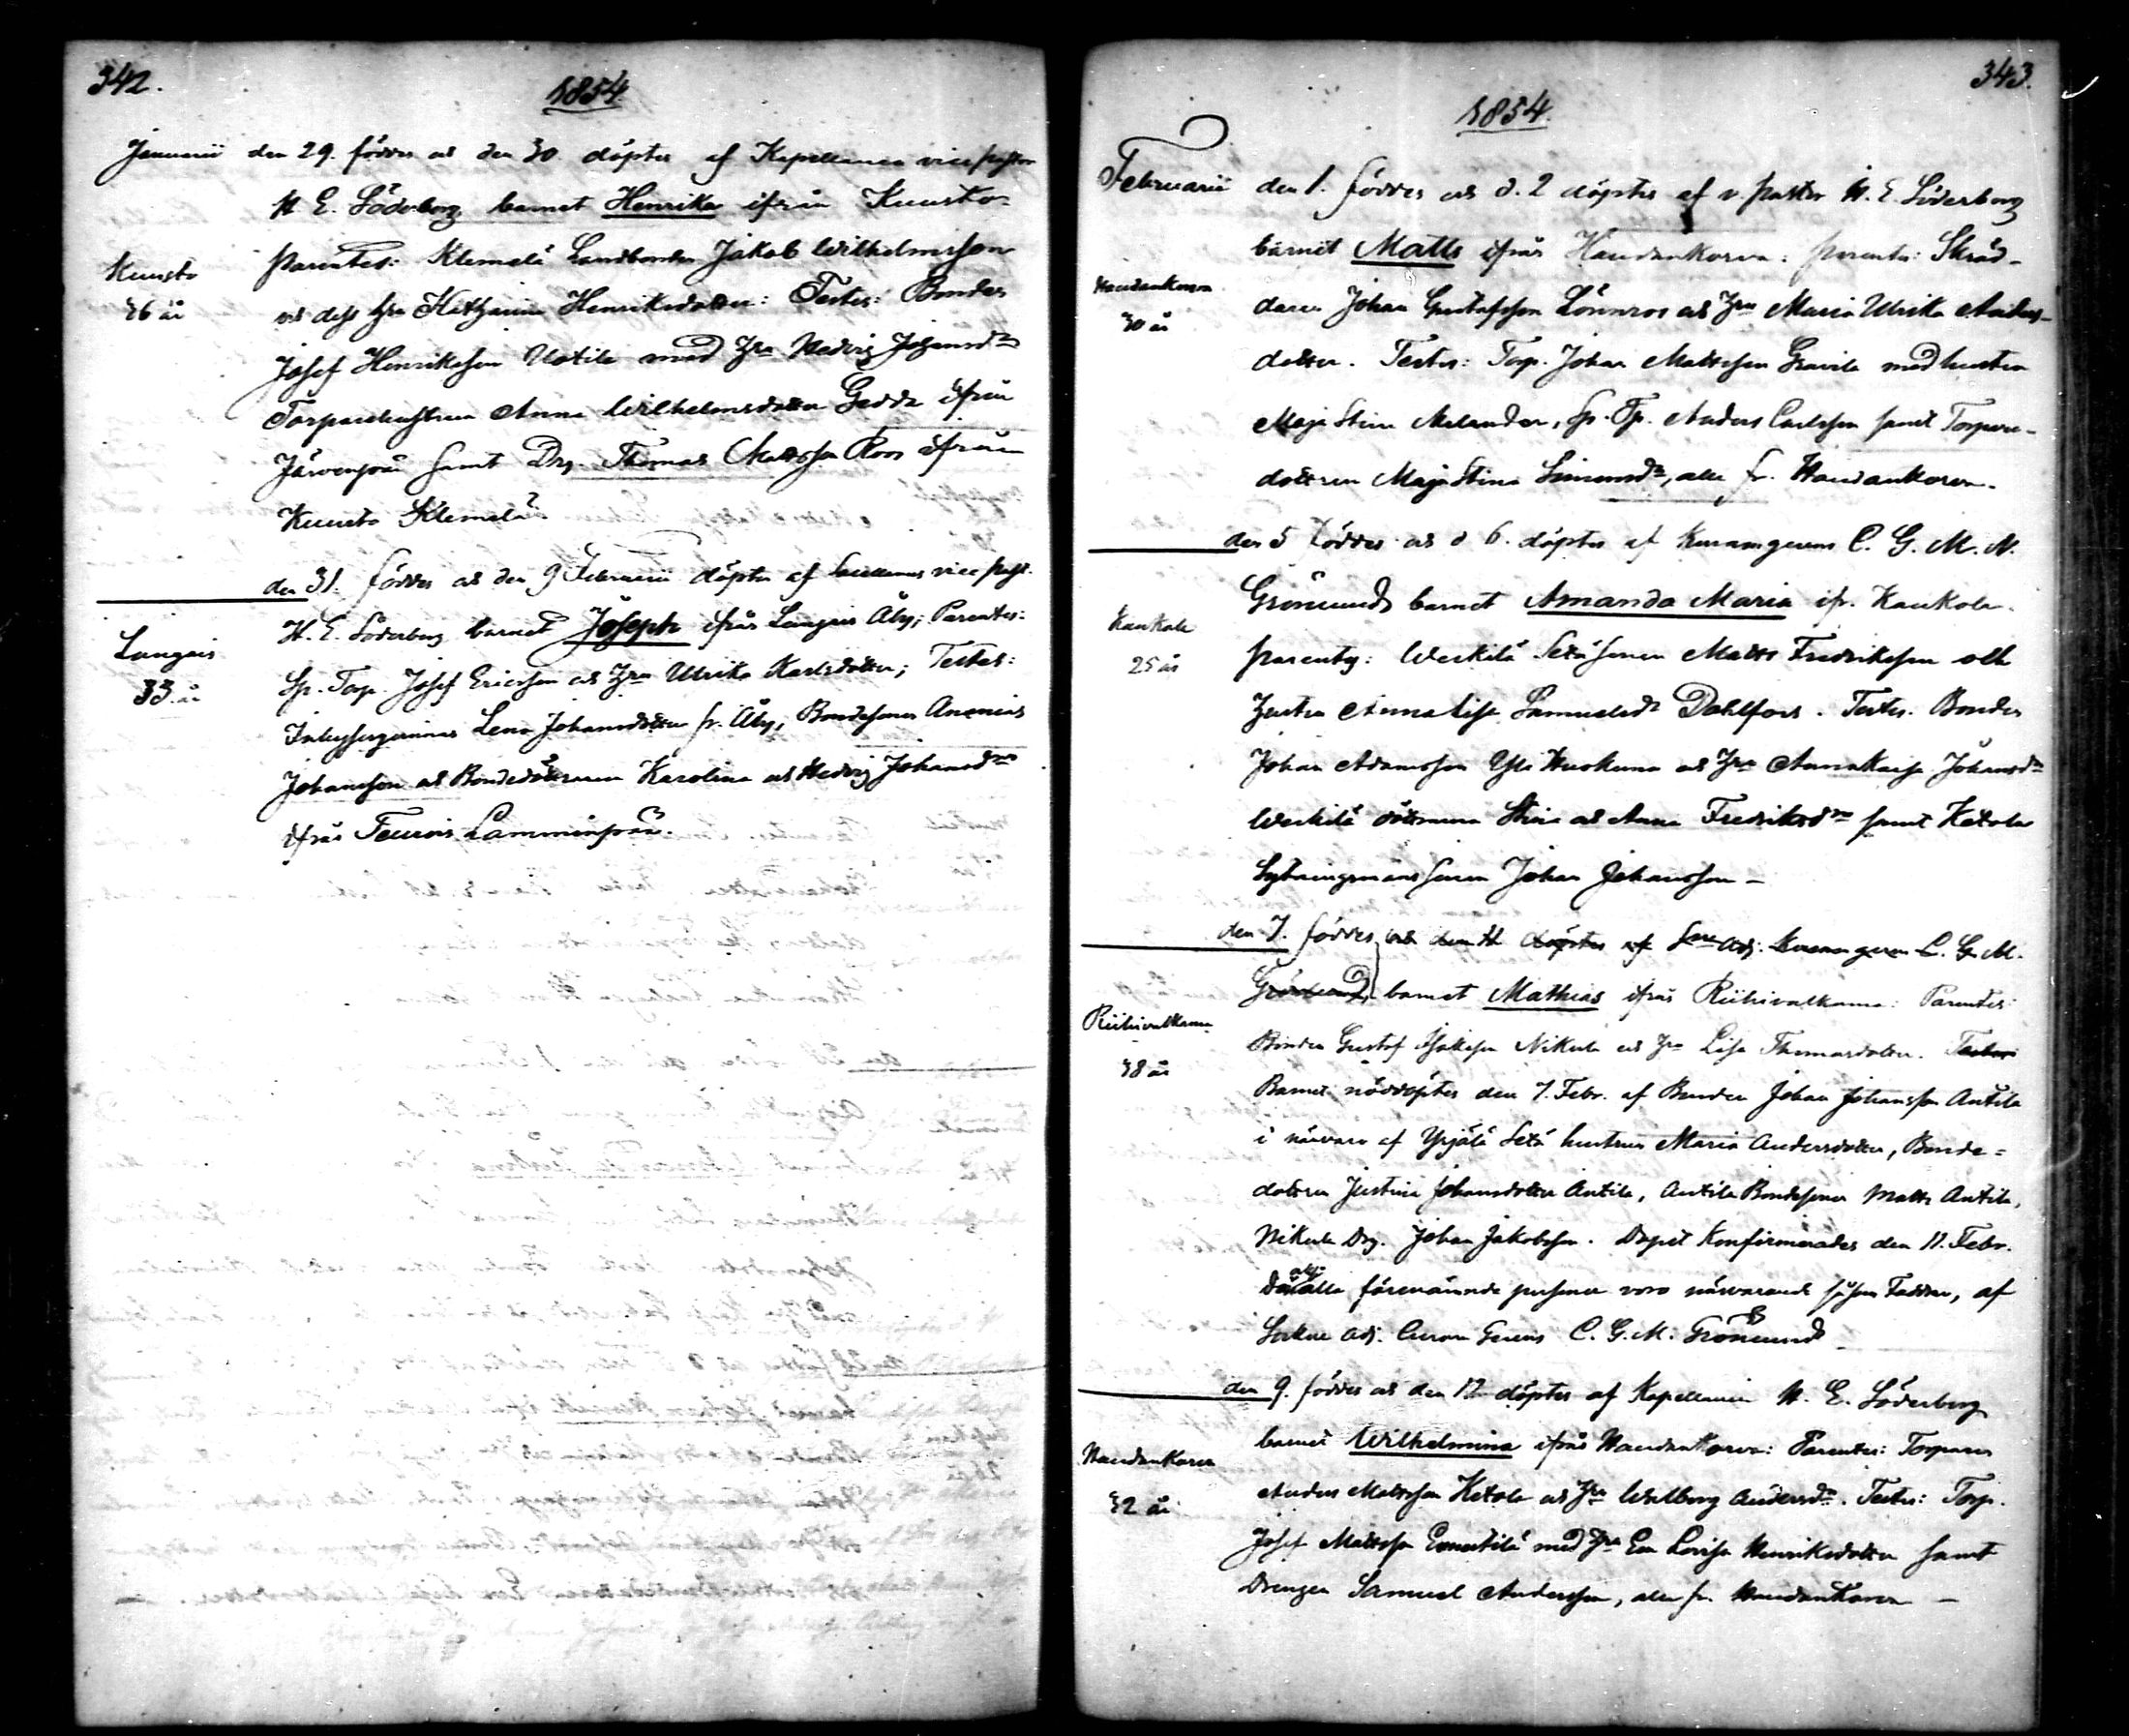 342.
1854
Januarii den 29. föddes och den 30. döptes af Kapellanen vice pastor
H. E. Söderberg barnet Henrika ifrån Kuusto
Kuusto
36 år
parentes: Klemelä Landbonden Jakob Wilhelmsson
och dess hu Katharina Henriksdotter: Testes: Bonden
Josef Henriksson Uotila med hu Hedvig Johansdr
Torparehustrun Anna Wilhelmsdotter Gedda ifrån
Järvenpää samt Drg. Thomas Mattsson Roos ifrån
Kuusto Klemelä
den 31. föddes och den 9 Februarii döptes af vice past.
H. E. Söderberg barnet Joseph ifrån Långais Åby; Parentes:
Långais
33. år
Sp. Torp. Josef Ericsson och hu Ulrika Karlsdotter; Testes:
Lena Johansdotter fr. Åby, Bondesonen Ananias
Johansson och Bondedöttrarna Karolina och Hedvig Johansdr
ifrån Teurois Lamminpää.
343.
1854.
Februarii den 1. föddes och d. 2 döptes af v. pastor H. E. Söderberg
barnet Matts ifrån Haudankorva: parentes: Skräd-
Haudankorva
30 år
daren Johan Gustafsson Lönnros och hu Maria Ulrika Anders-
dotter. Testes: Torp. Johan Mattsson Gravila med hustru
Maja Stina Melander, Sp. Tp. Anders Carlsson samt Torpare-
dottren Maja Stina Simonsdr, alla fr. Haudankorva.
den 5 föddes och d 6. döptes af Kuramgerens C. G. M. N.
Grönlund barnet Amanda Maria ifr. Kaukola.
Kaukola
25 år
parentes: Werkilä Sexåsonen Matts Fredriksson och
hustru Anna Lisa Samuelsdr Dahlfors. Testes. Bonden
Johan Adamsson Yli Huokuna och hu Anna Kaisa Johansdr
Werkilä döttrarna Stina och Anna Fredriksdr samt Ketola
Sytningsmanssonen Johan Johansson –
den 7. föddes och den 11 döptes af Adj. Kuramgerens C. G. M.
Grönlund barnet Mathias ifrån Riihivalkama: Parentes:
Riihivalkama
38 år
Bonden Gustaf Nikula och hu Lisa Thomasdotter. Testes
Barnet nöddöptes den 7. Febr. af Bonden Johan Johansson Antila
i närvaro af Yrjälä hustrun Maria Andersdotter, Bonde=
dottren Justina Johansdotter Antila, Antila Bondesonen Matts Antila,
Nikula Drg. Johan Jakobsson. Dopet Konfirmerades den 11. Febr.
då alla förenämnde personer voro närvarande såsom Faddrar, af
Adj. Curam Gerens C. G. M. Grönlund
den 9. föddes och den 12 döptes af Kapellanen H. E. Söderberg
barnet Wilhelmina ifrån Haudankorva: Parentes: Torparen
Haudankorva
32 år
Anders Mattsson Ketola och hu Walborg Andersdr. Testes: Torp.
Josef Mattsson med hu Eva Lovisa Henriksdotter samt
Drengen Samuel Andersson, alla fr. Haudankorva –